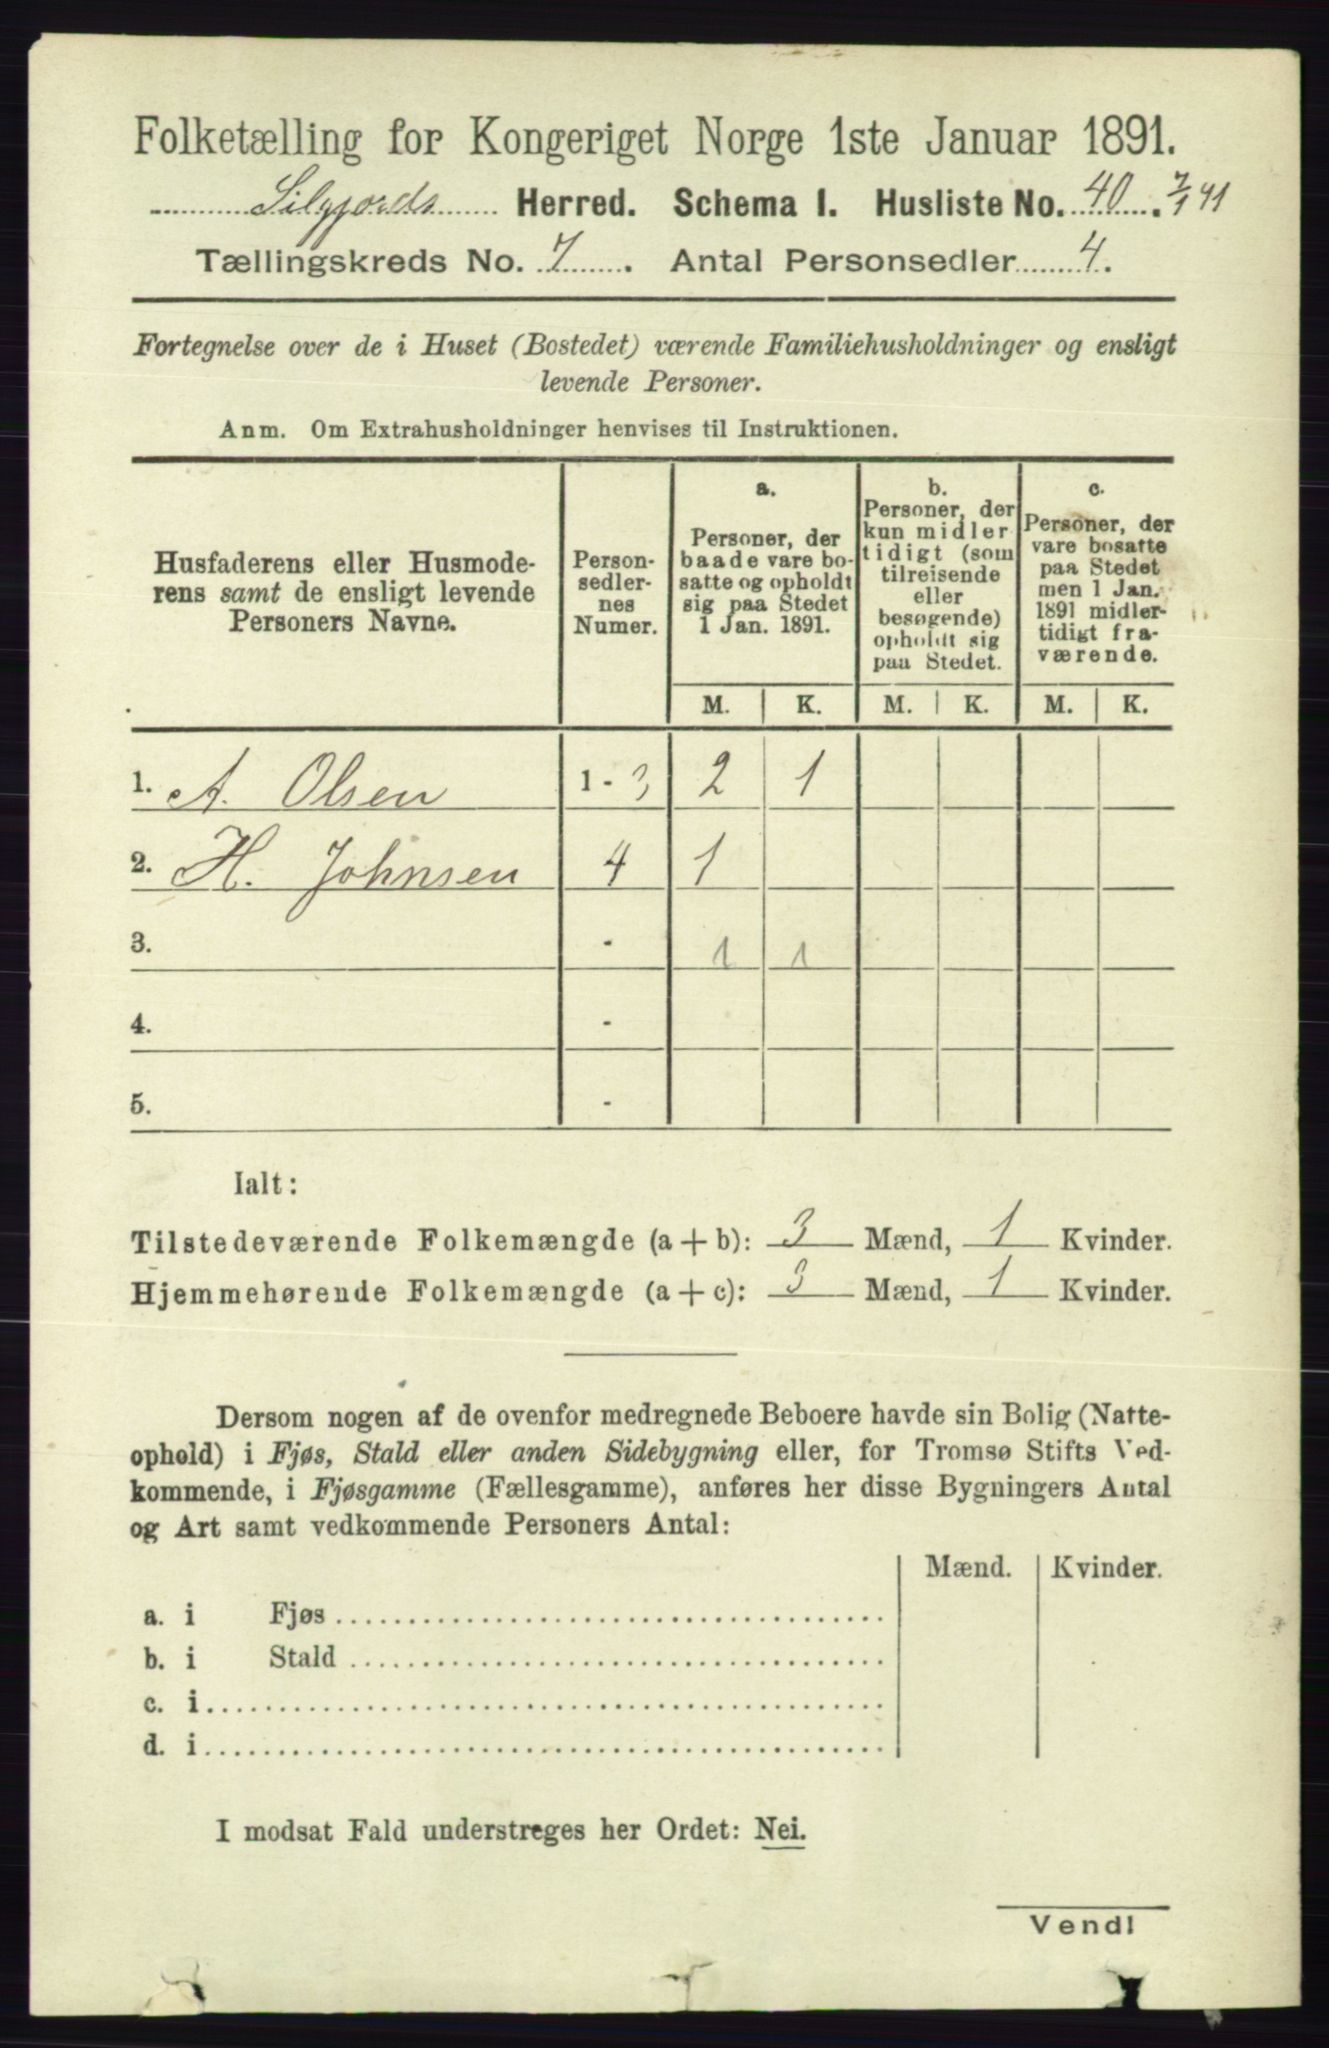 Folketælling for Kongeriget Norge 1ste Januar 1891.
Silgjords Herred. Schema 1. Husliste No. 40. 7/1 41
Tællingskreds No. 7. Antal Personsedler 4.
Fortegnelse over de i Huset (Bostedet) værende Familiehusholdninger og ensligt
levende Personer.
Anm. Om Extrahusholdninger henvises til Instruktionen.
Husfaderens eller Husmode-
rens samt de ensligt levende
Personers Navne.
Person-
sedler-
nes
Numer.
a.
Personer, der
baade vare bo-
satte og opholdt
sig paa Stedet
1 Jan. 1891.
b.
Personer, der
kun midler
tidigt (som
tilreisende
eller
besøgende)
opholdt sig
paa Stedet.
c.
Personer, der
vare bosatte
paa Stedet
men 1 Jan.
1891 midler-
tidigt fra-
værende.
M. K. M. K. M. K.
1. A. Olsen 1 - 3 2 1
2. H. Johnsen 4 1
3. - 1 1
4. -
5. -
Ialt:
Tilstedeværende Folkemængde (a + b): 3 Mænd, 1 Kvinder.
Hjemmehørende Folkemængde (a + c): 3 Mænd, 1 Kvinder.
Dersom nogen af de ovenfor medregnede Beboere havde sin Bolig (Natte-
ophold) i Fjøs, Stald eller anden Sidebygning eller, for Tromsø Stifts Ved-
kommende, i Fjøsgamme (Fællesgamme), anføres her disse Bygningers Antal
og Art samt vedkommende Personers Antal:
Mænd. Kvinder.
a. i Fjøs
b. i Stald
c. i
d. i
I modsat Fald understreges her Ordet: Nei.
Vend!